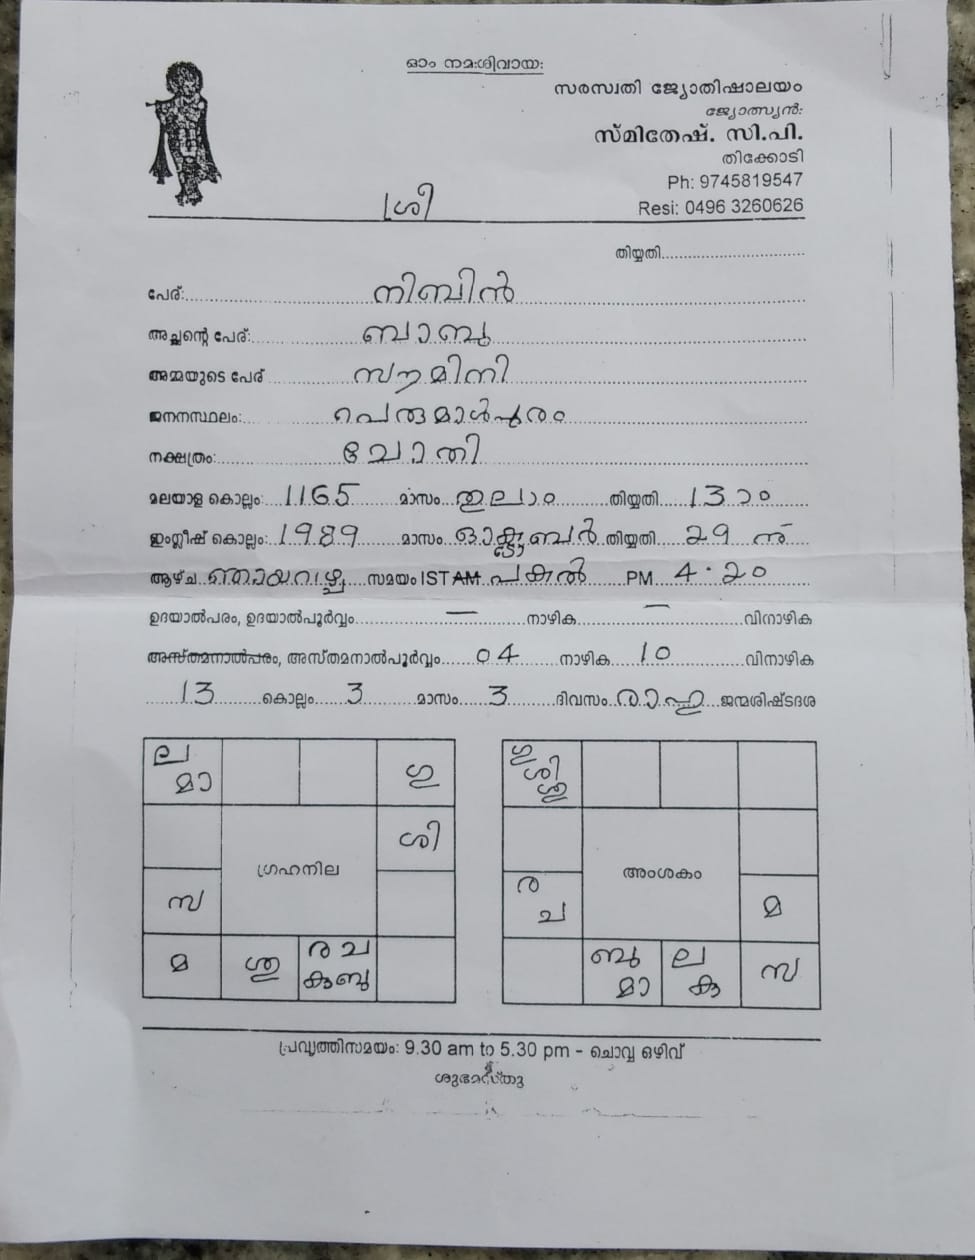 ഓം നമഃശിവായഃ
സരസ്വതി ജ്യോതിഷാലയം
ജ്യോത്സ്യൻ:
സ്മിതേഷ്. സി.പി.
തിക്കോടി
Ph: 9745819547
Resi: 0496 3260626
ശ്രീ
തിയ്യതി
പേര്: നിബിൻ
അച്ഛന്റെ പേര്: ബാബു
അമ്മയുടെ പേര് സൗമിനി
ജനനസ്ഥലം: പെരുമാൾപുരം
നക്ഷത്രം: ചോതി
മലയാള കൊല്ലം: 1165 മാസം തുലാം തിയ്യതി 13ാം
ഇംഗ്ലീഷ് കൊല്ലം: 1989 മാസം ഒക്ടോബർ തിയ്യതി 29 ന്
ആഴ്ച ഞായറാഴ്ച സമയം IST AM പകൽ PM 4.20
ഉദയാൽപരം, ഉദയാൽപൂർവ്വം — നാഴിക — വിനാഴിക
അസ്തമനാൽപരം, അസ്തമനാൽപൂർവ്വം 04 നാഴിക 10 വിനാഴിക
13 കൊല്ലം 3 മാസം 3 ദിവസം രാഹു ജന്മശിഷ്ടദശ
ല മാ ഗു
ശി
ഗ്രഹനില
സ
മ ശു ര ച കു ബു
ഗു ശി ശു
അംശകം
ര ച മ
ബു മാ ല കു സ
പ്രവൃത്തിസമയം: 9.30 am to 5.30 pm - ചൊവ്വ ഒഴിവ്
ശുഭമസ്തു